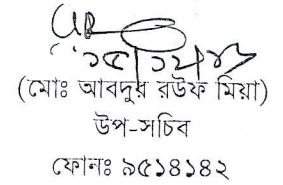 (মোঃ আবদুর রউফ মিয়া)
উপ-সচিব
ফোনঃ ৯৫১৪১৪২